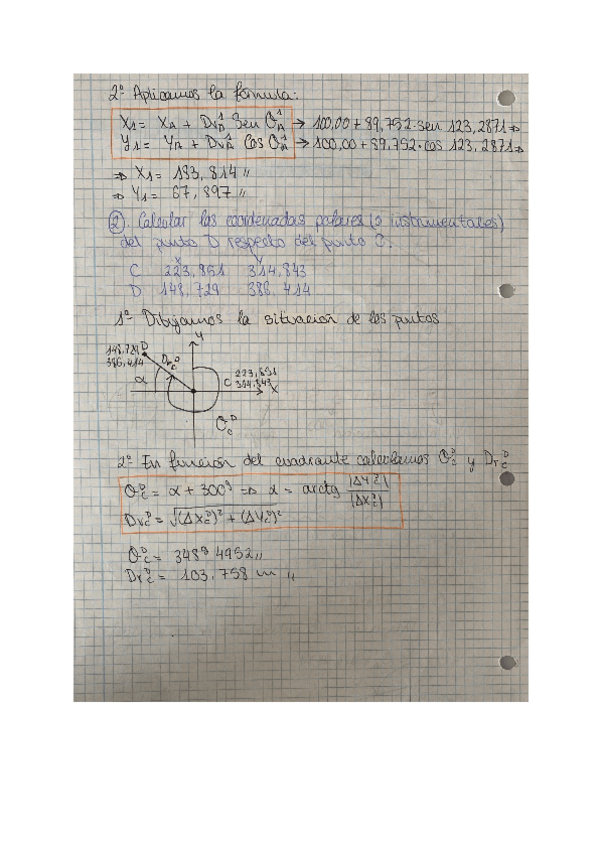 2º Aplicamos la fórmula:
X1 = XA + DrA1 Sen ΘA1 → 100,00 + 99,752 · sen 123,2871 ⇒
Y1 = YA + DrA1 Cos ΘA1 → 100,00 + 99,752 · cos 123,2871 ⇒
⇒ X1 = 193,814 //
⇒ Y1 = 67,897 //
② . Calcular las coordenadas polares (o instrumentales)
del punto D respecto del punto C.
X Y
C 223,851 314,843
D 148,729 386,414
1º Dibujamos la situación de los puntos
Y
148,729 D
386,414
DrCD
α
C 223,851
314,843
X
ΘCD
2º En función del cuadrante calculamos ΘCD y DrCD
ΘCD = α + 300g ⇒ α = arctg |ΔYCD| / |ΔXCD|
DrCD = √(ΔXCD)² + (ΔYCD)²
ΘCD = 348g 4952 //
DrCD = 103,758 m //